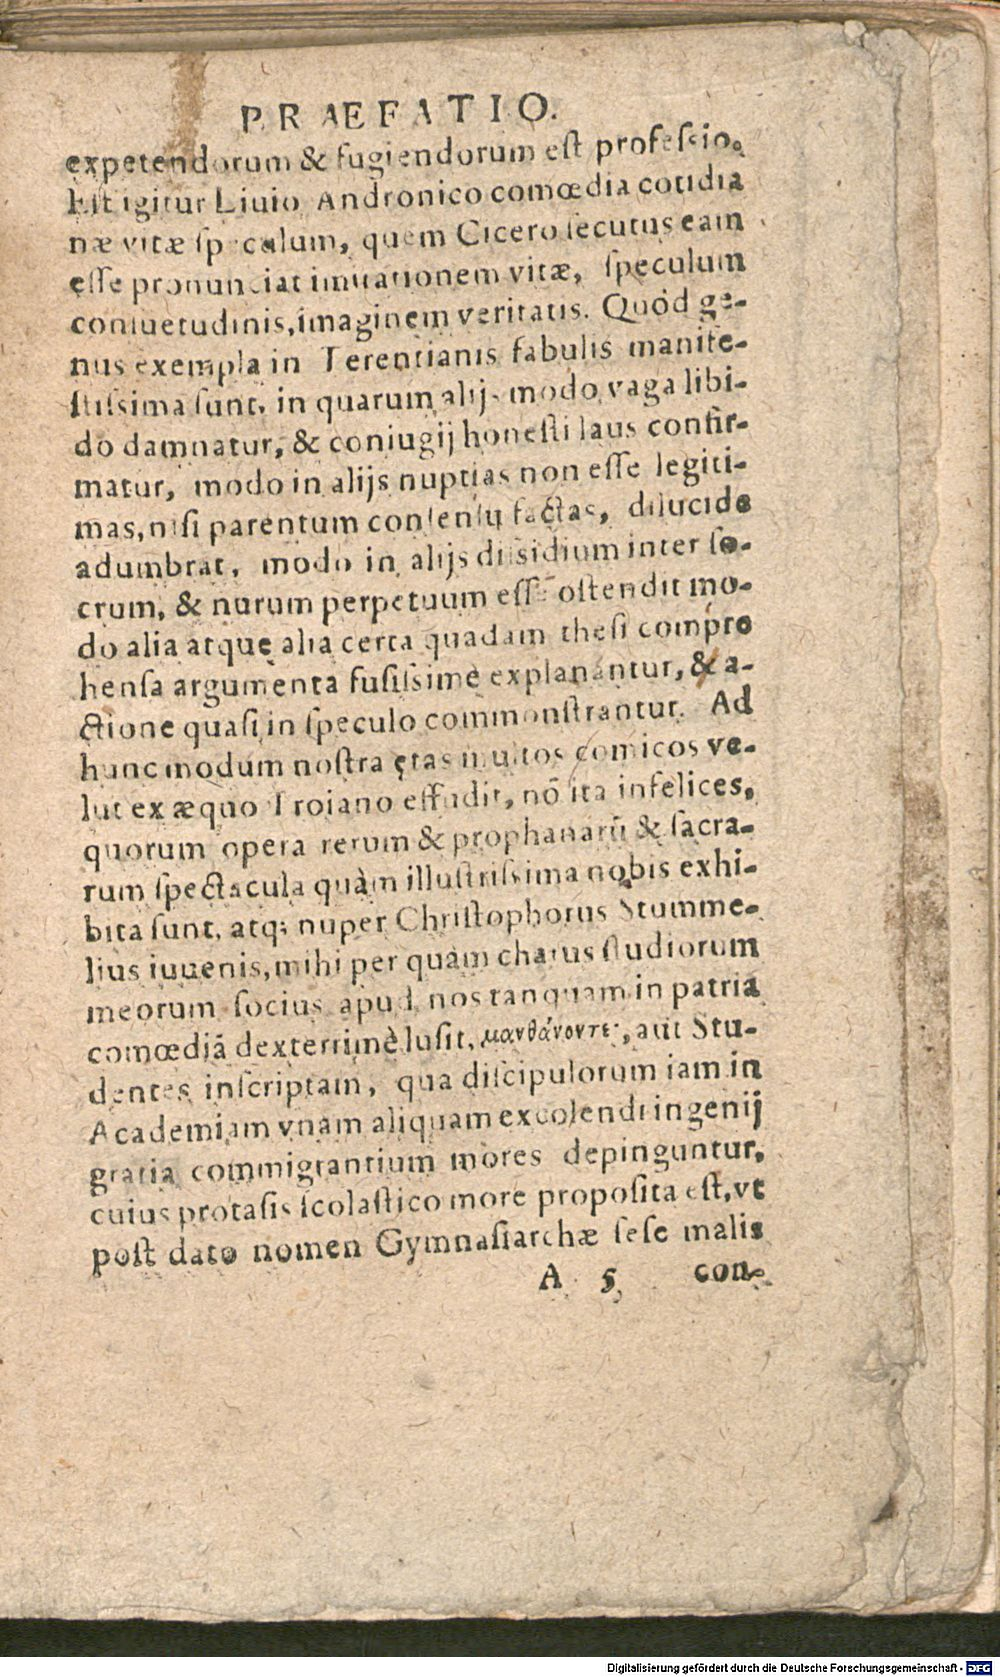 PRÆFATIO.
expetendorum & fugiendorum est professio.
Est igitur Liuio Andronico comœdia cotidia
næ vitæ speculum, quem Cicero secutus eam
esse pronunciat imitationem vitæ, speculum
consuetudinis, imaginem veritatis. Quòd ge-
nus exempla in Terentianis fabulis manife-
stissima sunt, in quarum alijs modo vaga libi-
do damnatur, & coniugij honesti laus confir-
matur, modo in alijs nuptias non esse legiti-
mas, nisi parentum consensu factas, dilucide
adumbrat, modo in alijs dissidium inter so-
crum, & nurum perpetuum esse ostendit mo-
do alia atque alia certa quadam thesi compre
hensa argumenta fusissimè explanantur, & a-
ctione quasi in speculo commonstrantur. Ad
hunc modum nostra ętas multos comicos ve-
lut ex æquo Troiano effudit, nō ita infelices,
quorum opera rerum & prophanarū & sacra-
rum spectacula quàm illustrissima nobis exhi-
bita sunt, atq; nuper Christophorus Stumme-
lius iuuenis, mihi per quàm charus studiorum
meorum socius apud nos tanquam in patria
comœdiā dexterrimè lusit, μανθάνοντες, aut Stu-
dentes inscriptam, qua discipulorum iam in
Academiam vnam aliquam excolendi ingenij
gratia commigrantium mores depinguntur,
cuius protasis scolastico more proposita est, vt
post dato nomen Gymnasiarchæ sese malis
A 5 con-
Digitalisierung gefördert durch die Deutsche Forschungsgemeinschaft - DFG